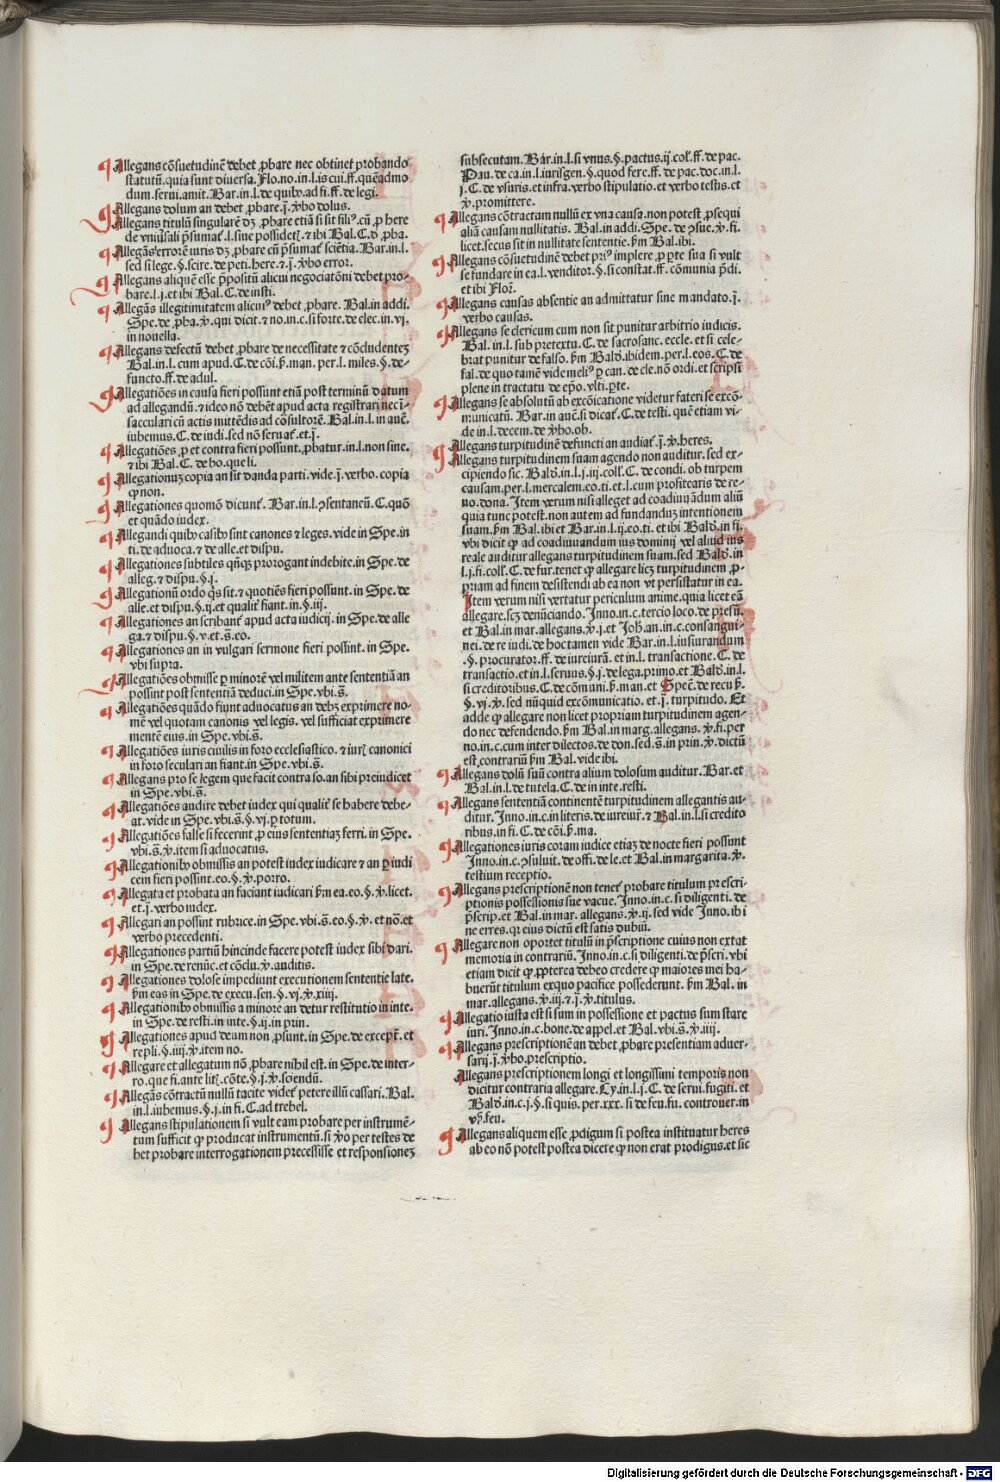 Allegans cõsuetudinẽ debet ꝓbare nec obtinet probando
statutũ.quia sunt diuersa. Flo.no.in.l.is cui.ff.quẽadmo
dum.serui.amit. Bar.in.l.de quibꝫ.ad fi.ff.de legi.
Allegans dolum an debet ꝓbare.j̃.ꝟbo dolus.
Allegans titulũ singularẽ dꝫ ꝓbare etiã si sit filiꝰ.cũ ꝓ here
de vniũsali p̃sumat̃.l.siue possidetꝭ.⁊ ibi Bal.C.d̓ ꝓba.
Allegãs errorẽ iuris dꝫ ꝓbare cũ p̃sumat̃ sciẽtia. Bar.in.l.
sed si lege.§.scire.de peti.here.⁊.j̃.ꝟbo error.
Allegans aliquẽ esse p̃positũ alicui negociatõni debet pro-
bare.l.j.et ibi Bal.C.de insti.
Allegãs illegitimitatem alicuiꝰ debet ꝓbare. Bal.in addi.
Spe.de ꝓba.ꝟ.qui dicit.⁊ no.in.c.si forte.de elec.in.vj.
in nouella.
Allegans defectũ debet ꝓbare de necessitate ⁊ cõcludenteꝫ
Bal.in.l.cum apud.C.de cõi.ẜ.man.per.l.miles.§.de-
functo.ff.de adul.
Allegatiões in causa fieri possunt etiã post terminũ datum
ad allegandũ.⁊ ideo nõ debẽt apud acta registrari nec ĩ-
sacculari cũ actis mittẽdis ad cõsultorẽ. Bal.in.l.in auct̃.
iubemus.C.de iudi.sed nõ seruat̃.et.j̃.
Allegatiões ꝓ et contra fieri possunt.ꝓbatur.in.l.non sine.
⁊ ibi Bal.C.de bo.que li.
Allegationuꝫ copia an sit danda parti.vide.j̃.verbo.copia
ꝙ non.
Allegationes quomõ dicunt̃. Bar.in.l.ꝯsentaneũ.C.quõ
et quãdo iudex.
Allegandi quibꝫ casibꝫ sint canones ⁊ leges.vide in Spe.in
ti.de aduoca.⁊ de alle.et dispu.
Allegationes subtiles qñqꝫ prorogant indebite.in Spe.de
alleg.⁊ dispu.§.j.
Allegationũ ordo q̃s sit.⁊ quotiẽs fieri possunt.in Spe.de
alle.et dispu.§.ij.et qualit̃ fiant.in.§.iij.
Allegationes an scribant̃ apud acta iudicij.in Spe.de alle
ga.⁊ dispu.§.v.et.s̃.eo.
Allegationes an in vulgari sermone fieri possint.in Spe.
vbi supra.
Allegatiões obmisse ꝑ minorẽ vel militem ante sententiã an
possint post sententiã deduci.in Spe.vbi.s̃.
Allegatiões quãdo fiunt aduocatus an debꝫ exprimere no-
mẽ vel quotam canonis vel legis.vel sufficiat exprimere
mentẽ eius.in Spe.vbi.s̃.
Allegatiões iuris ciuilis in foro ecclesiastico.⁊ iurꝭ canonici
in foro seculari an fiant.in Spe.vbi.s̃.
Allegans pro se legem que facit contra so.an sibi preiudicet
in Spe.vbi.s̃.
Allegatiões audire debet iudex qui qualit̃ se habere debe-
at.vide in Spe.vbi.s̃.§.vj.ꝑ totum.
Allegatiões false si fecerint ꝓ eius sententiaꝫ ferri.in Spe.
vbi.s̃.ꝟ.item si aduocatus.
Allegationibꝫ obmissis an potest iudex iudicare ⁊ an ꝑ iudi
cem fieri possint.eo.§.ꝟ.porro.
Allegata et probata an faciant iudicari ẜm ea.eo.§.ꝟ.licet.
et.j̃.verbo iudex.
Allegari an possint rubrice.in Spe.vbi.s̃.eo.§.ꝟ.et nõ.et
verbo precedenti.
Allegationes partiũ hincinde facere potest iudex sibi dari.
in Spe.de renũc.et cõclu.ꝟ.auditis.
Allegationes dolose impediunt executionem sententie late.
ẜm eas in Spe.de execu.sen.§.vj.ꝟ.xiiij.
Allegationibꝫ obmissis a minore an detur restitutio in inte.
in Spe.de resti.in inte.§.ij.in prin.
Allegationes apud deum non ꝓsunt.in Spe.de except̃.et
repli.§.iiij.ꝟ.item no.
Allegare et allegatum nõ ꝓbare nihil est.in Spe.de inter-
ro.que fi.ante litꝭ.cõte.§.j.ꝟ.sciendũ.
Allegãs cõtractũ nullũ tacite videt̃ petere illũ cassari. Bal.
in.l.iubemus.§.j.in fi.C.ad trebel.
Allegans stipulationem si vult eam probare per instrumẽ-
tum sufficit ꝙ producat instrumentũ.si ꝟo per testes de
bet probare interrogationem precessisse et responsioneꝫ
subsecutam. Bar.in.l.si vnus.§.pactus.ij.coll̃.ff.de pac.
Pau.de ca.in.l.iurisgen.§.quod fere.ff.de pac.doc.in.l.
j.C.de vsuris.et infra.verbo stipulatio.et verbo testis.et
ꝟ.promittere.
Allegans cõtractam nullũ ex vna causa.non potest ꝓsequi
aliã causam nullitatis. Bal.in addi.Spe.de ꝯsue.ꝟ.fi.
licet.secus sit in nullitate sententie.ẜm Bal.ibi.
Allegans cõsuetudinẽ debet priꝰ implere ꝓ ꝑte sua si vult
se fundare in ea.l.venditor.§.si constat.ff.cõmunia p̃di.
et ibi Flor̃.
Allegans causas absentie an admittatur sine mandato.j̃.
verbo causas.
Allegans se clericum cum non sit punitur arbitrio iudicis.
Bal.in.l.sub pretextu.C.de sacrosanc.eccle.et si cele-
brat punitur de falso.ẜm Bald̃.ibidem.per.l.eos.C.de
fal.de quo tamẽ vide meliꝰ ꝑ can.de cle.nõ ordi.et scripsi
plene in tractatu de ep̃o.vlti.ꝑte.
Allegans se absolutũ ab excõicatione videtur fateri se excõ-
municatũ. Bar.in auct̃.si dicat̃.C.de testi.quẽ etiam vi-
de in.l.decem.de ꝟbo.ob.
Allegans turpitudinẽ defuncti an audiat̃.j̃.ꝟ.heres.
Allegans turpitudinem suam agendo non auditur.sed ex-
cipiendo sic. Bald̃.in.l.j.iij.coll̃.C.de condi.ob turpem
causam.per.l.mercalem.eo.ti.et.l.cum profitearis de re-
uo.dona. Item verum nisi alleget ad coadiuuãdum aliũ
quia tunc potest.non autem ad fundanduꝫ intentionem
suam.ẜm Bal.ibi et Bar.in.l.ij.eo.ti.et ibi Bald̃.in fi
vbi dicit ꝙ ad coadiuuandum ius dominij vel aliud ius
reale auditur allegans turpitudinem suam.sed Bald̃.in
l.j.fi.coll̃.C.de fur.tenet ꝙ allegare licꝫ turpitudinem ꝓ-
priam ad finem desistendi ab ea non vt persistatur in ea.
Item verum nisi vertatur periculum anime.quia licet eã
allegare.scꝫ denũciando. Inno.in.c.tercio loco.de presũ.
et Bal.in mar.allegans.ꝟ.j.et Joh̃.an.in.c.consangui-
nei.de re iudi.de hoc tamen vide Bar.in.l.iusiurandum
.§.procurator.ff.de iureiurã.et in.l.transactione.C.de
transactio.et in.l.seruus.§.j.de lega.primo.et Bald̃.in.l.
si creditoribus.C.de cõmuni.ẜ.man.et Spec̃.de recu ẜ.
§.vj.ꝟ.sed nũquid excõmunicatio.et.j̃.turpitudo. Et
adde ꝙ allegare non licet propriam turpitudinem agen-
do nec defendendo.ẜm Bal.in marg.allegans.ꝟ.fi.per
no.in.c.cum inter dilectos.de don.sed.s̃.in prin.ꝟ.dictũ
est contrariũ ẜm Bal.vide ibi.
Allegans dolũ suũ contra alium dolosum auditur. Bar.et
Bal.in.l.de tutela.C.de in inte.resti.
Allegans sententiã continentẽ turpitudinem allegantis au-
ditur. Inno.in.c.in literis.de iureiur̃.⁊ Bal.in.l.si credito
ribus.in fi.C.de cõi.ẜ.ma.
Allegationes iuris coram iudice etiaꝫ de nocte fieri possunt
Inno.in.c.ꝯsuluit.de offi.de le.et Bal.in margarita.ꝟ.
testium receptio.
Allegans prescriptionẽ non tenet̃ probare titulum prescri-
ptionis possessionis sue vacue. Inno.in.c.si diligenti.de
p̃scrip.et Bal.in mar.allegans.ꝟ.ij.sed vide Inno.ibi
ne erres.qꝛ eius dictũ est satis dubiũ.
Allegare non oportet titulũ in p̃scriptione cuius non extat
memoria in contrariũ. Inno.in.c.si diligenti.de p̃scri.vbi
etiam dicit ꝙ ꝓpterea debeo credere ꝙ maiores mei ha-
buerũt titulum exquo pacifice possederunt.ẜm Bal.in
mar.allegans.ꝟ.iij.⁊.j̃.ꝟ.titulus.
Allegatio iusta est si sum in possessione et pactus sum stare
iuri. Inno.in.c.bone.de appel.et Bal.vbi.s̃.ꝟ.iiij.
Allegans prescriptionẽ an debet ꝓbare presentiam aduer-
sarij.j̃.ꝟbo.prescriptio.
Allegans prescriptionem longi et longissimi temporis non
dicitur contraria allegare. Cy.in.l.j.C.de serui.fugiti.et
Bald̃.in.c.j.§.si quis.per.xxx.si de feu.fu.controuer.in
vsꝰ.feu.
Allegans aliquem esse ꝓdigum si postea instituatur heres
ab eo nõ potest postea dicere ꝙ non erat prodigus.et sic
Digitalisierung gefördert durch die Deutsche Forschungsgemeinschaft - DFG